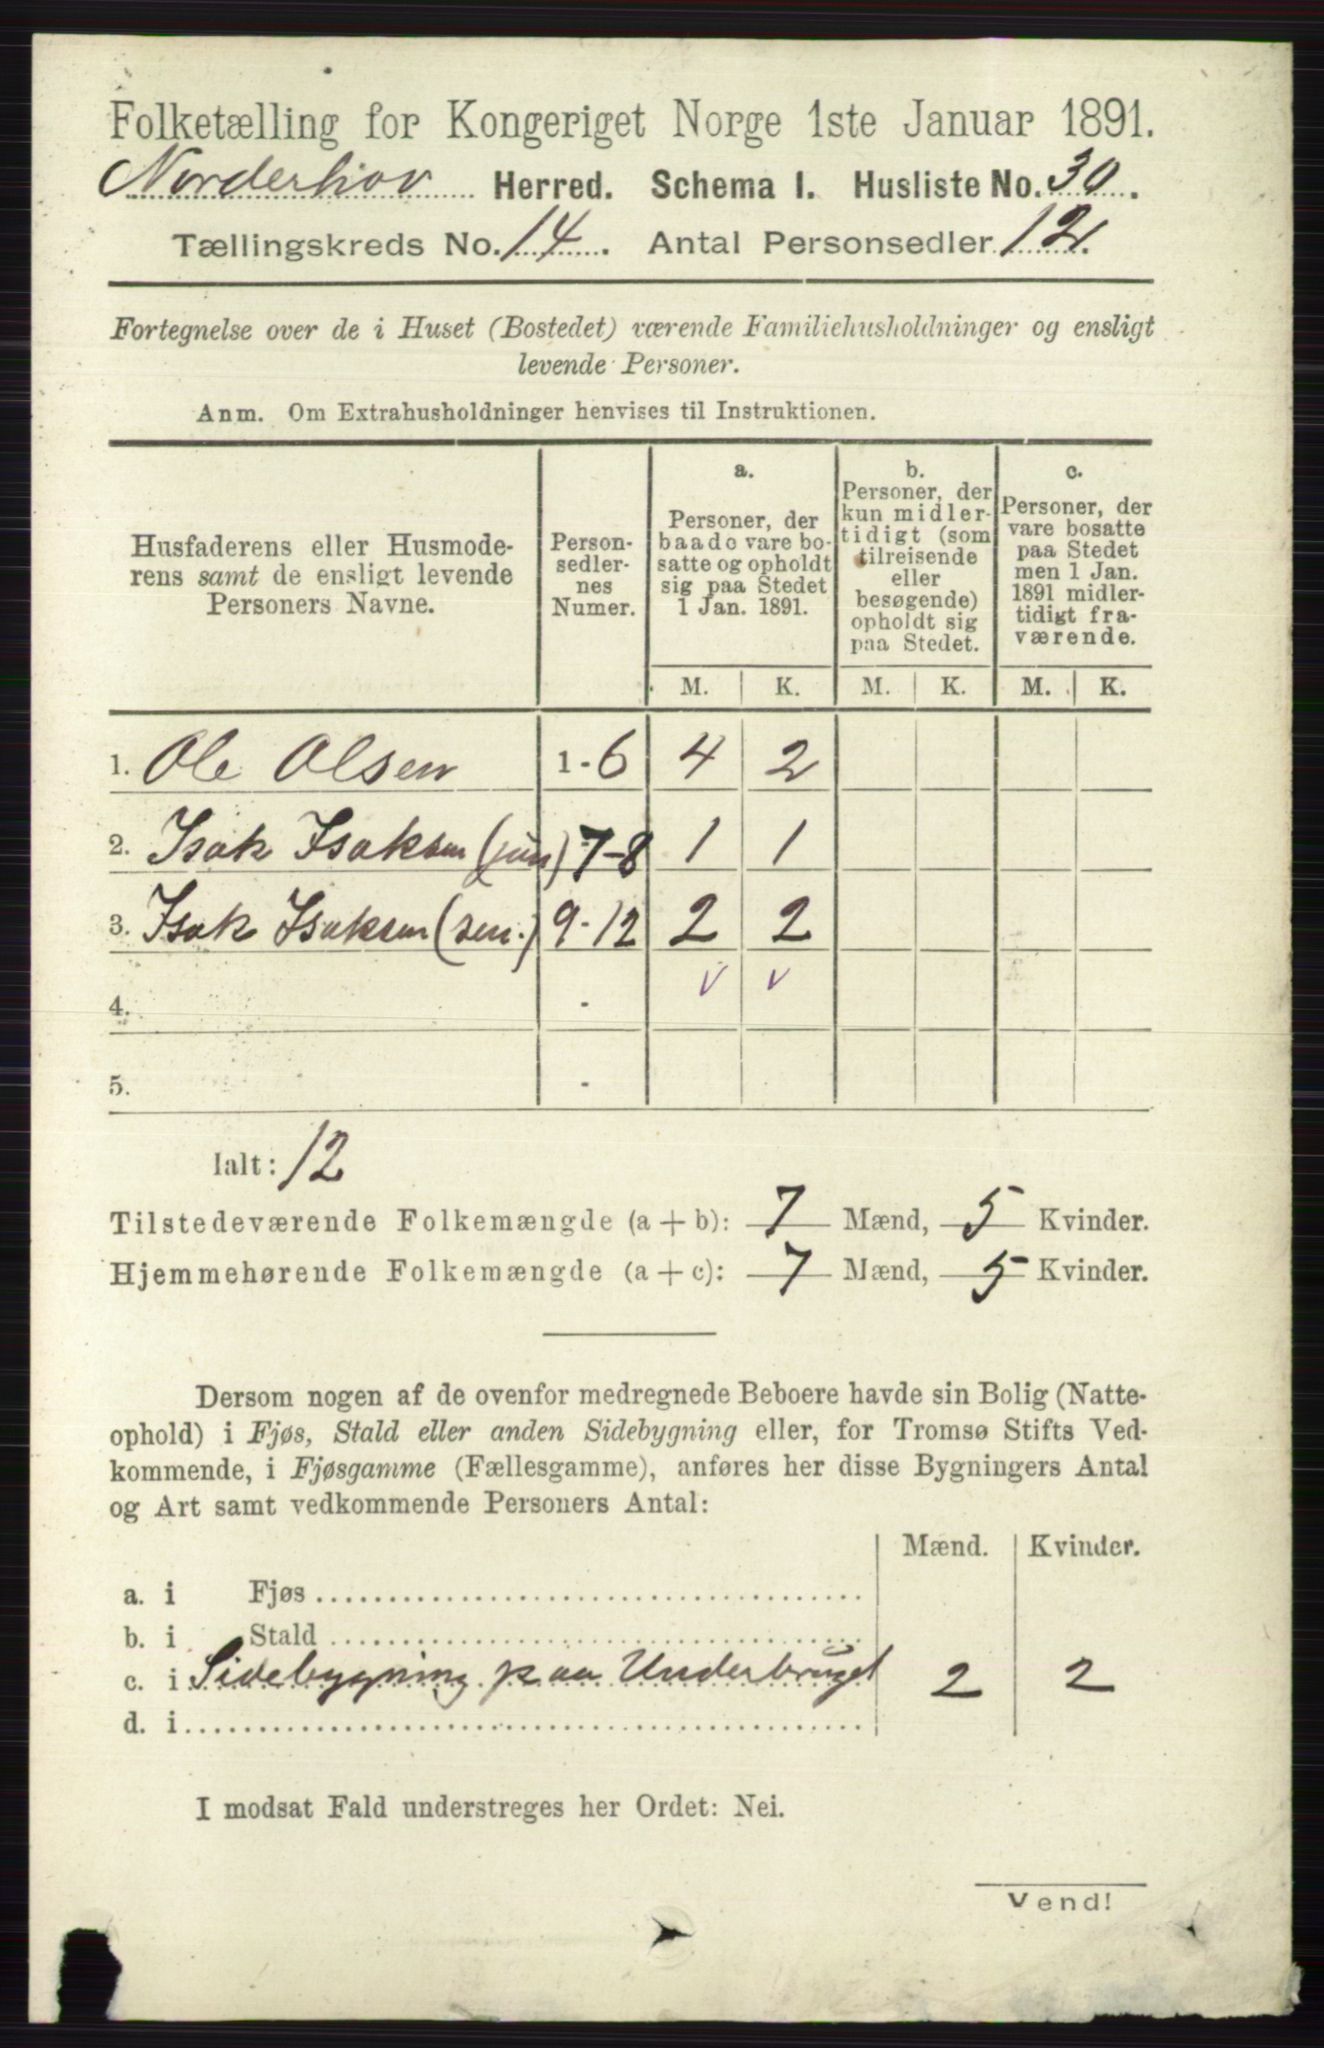 Folketælling for Kongeriget Norge 1ste Januar 1891.
Norderhov Herred. Schema I. Husliste No. 30.
Tællingskreds No. 14. Antal Personsedler 12.
Fortegnelse over de i Huset (Bostedet) værende Familiehusholdninger og ensligt
levende Personer.
Anm. Om Extrahusholdninger henvises til Instruktionen.
Husfaderens eller Husmode-
rens samt de ensligt levende
Personers Navne.
Person-
sedler-
nes
Numer.
a.
Personer, der
baade vare bo-
satte og opholdt
sig paa Stedet
1 Jan. 1891.
b.
Personer, der
kun midler-
tidigt (som
tilreisende
eller
besøgende)
opholdt sig
paa Stedet.
c.
Personer, der
vare bosatte
paa Stedet
men 1 Jan.
1891 midler-
tidigt fra-
værende.
M. K. M. K. M. K.
1. Ole Olsen 1-6 4 2
2. Isak Isaksen (jun) 7-8 1 1
3. Isak Isaksen (sen.) 9-12 2 2
4. - v v
5. -
Ialt: 12
Tilstedeværende Folkemængde (a + b): 7 Mænd, 5 Kvinder.
Hjemmehørende Folkemængde (a + c): 7 Mænd, 5 Kvinder.
Dersom nogen af de ovenfor medregnede Beboere havde sin Bolig (Natte-
ophold) i Fjøs, Stald eller anden Sidebygning eller, for Tromsø Stifts Ved-
kommende, i Fjøsgamme (Fællesgamme), anføres her disse Bygningers Antal
og Art samt vedkommende Personers Antal:
Mænd. Kvinder.
a. i Fjøs
b. i Stald
c. i Sidebygning paa Underbruget 2 2
d. i
I modsat Fald understreges her Ordet: Nei.
Vend!